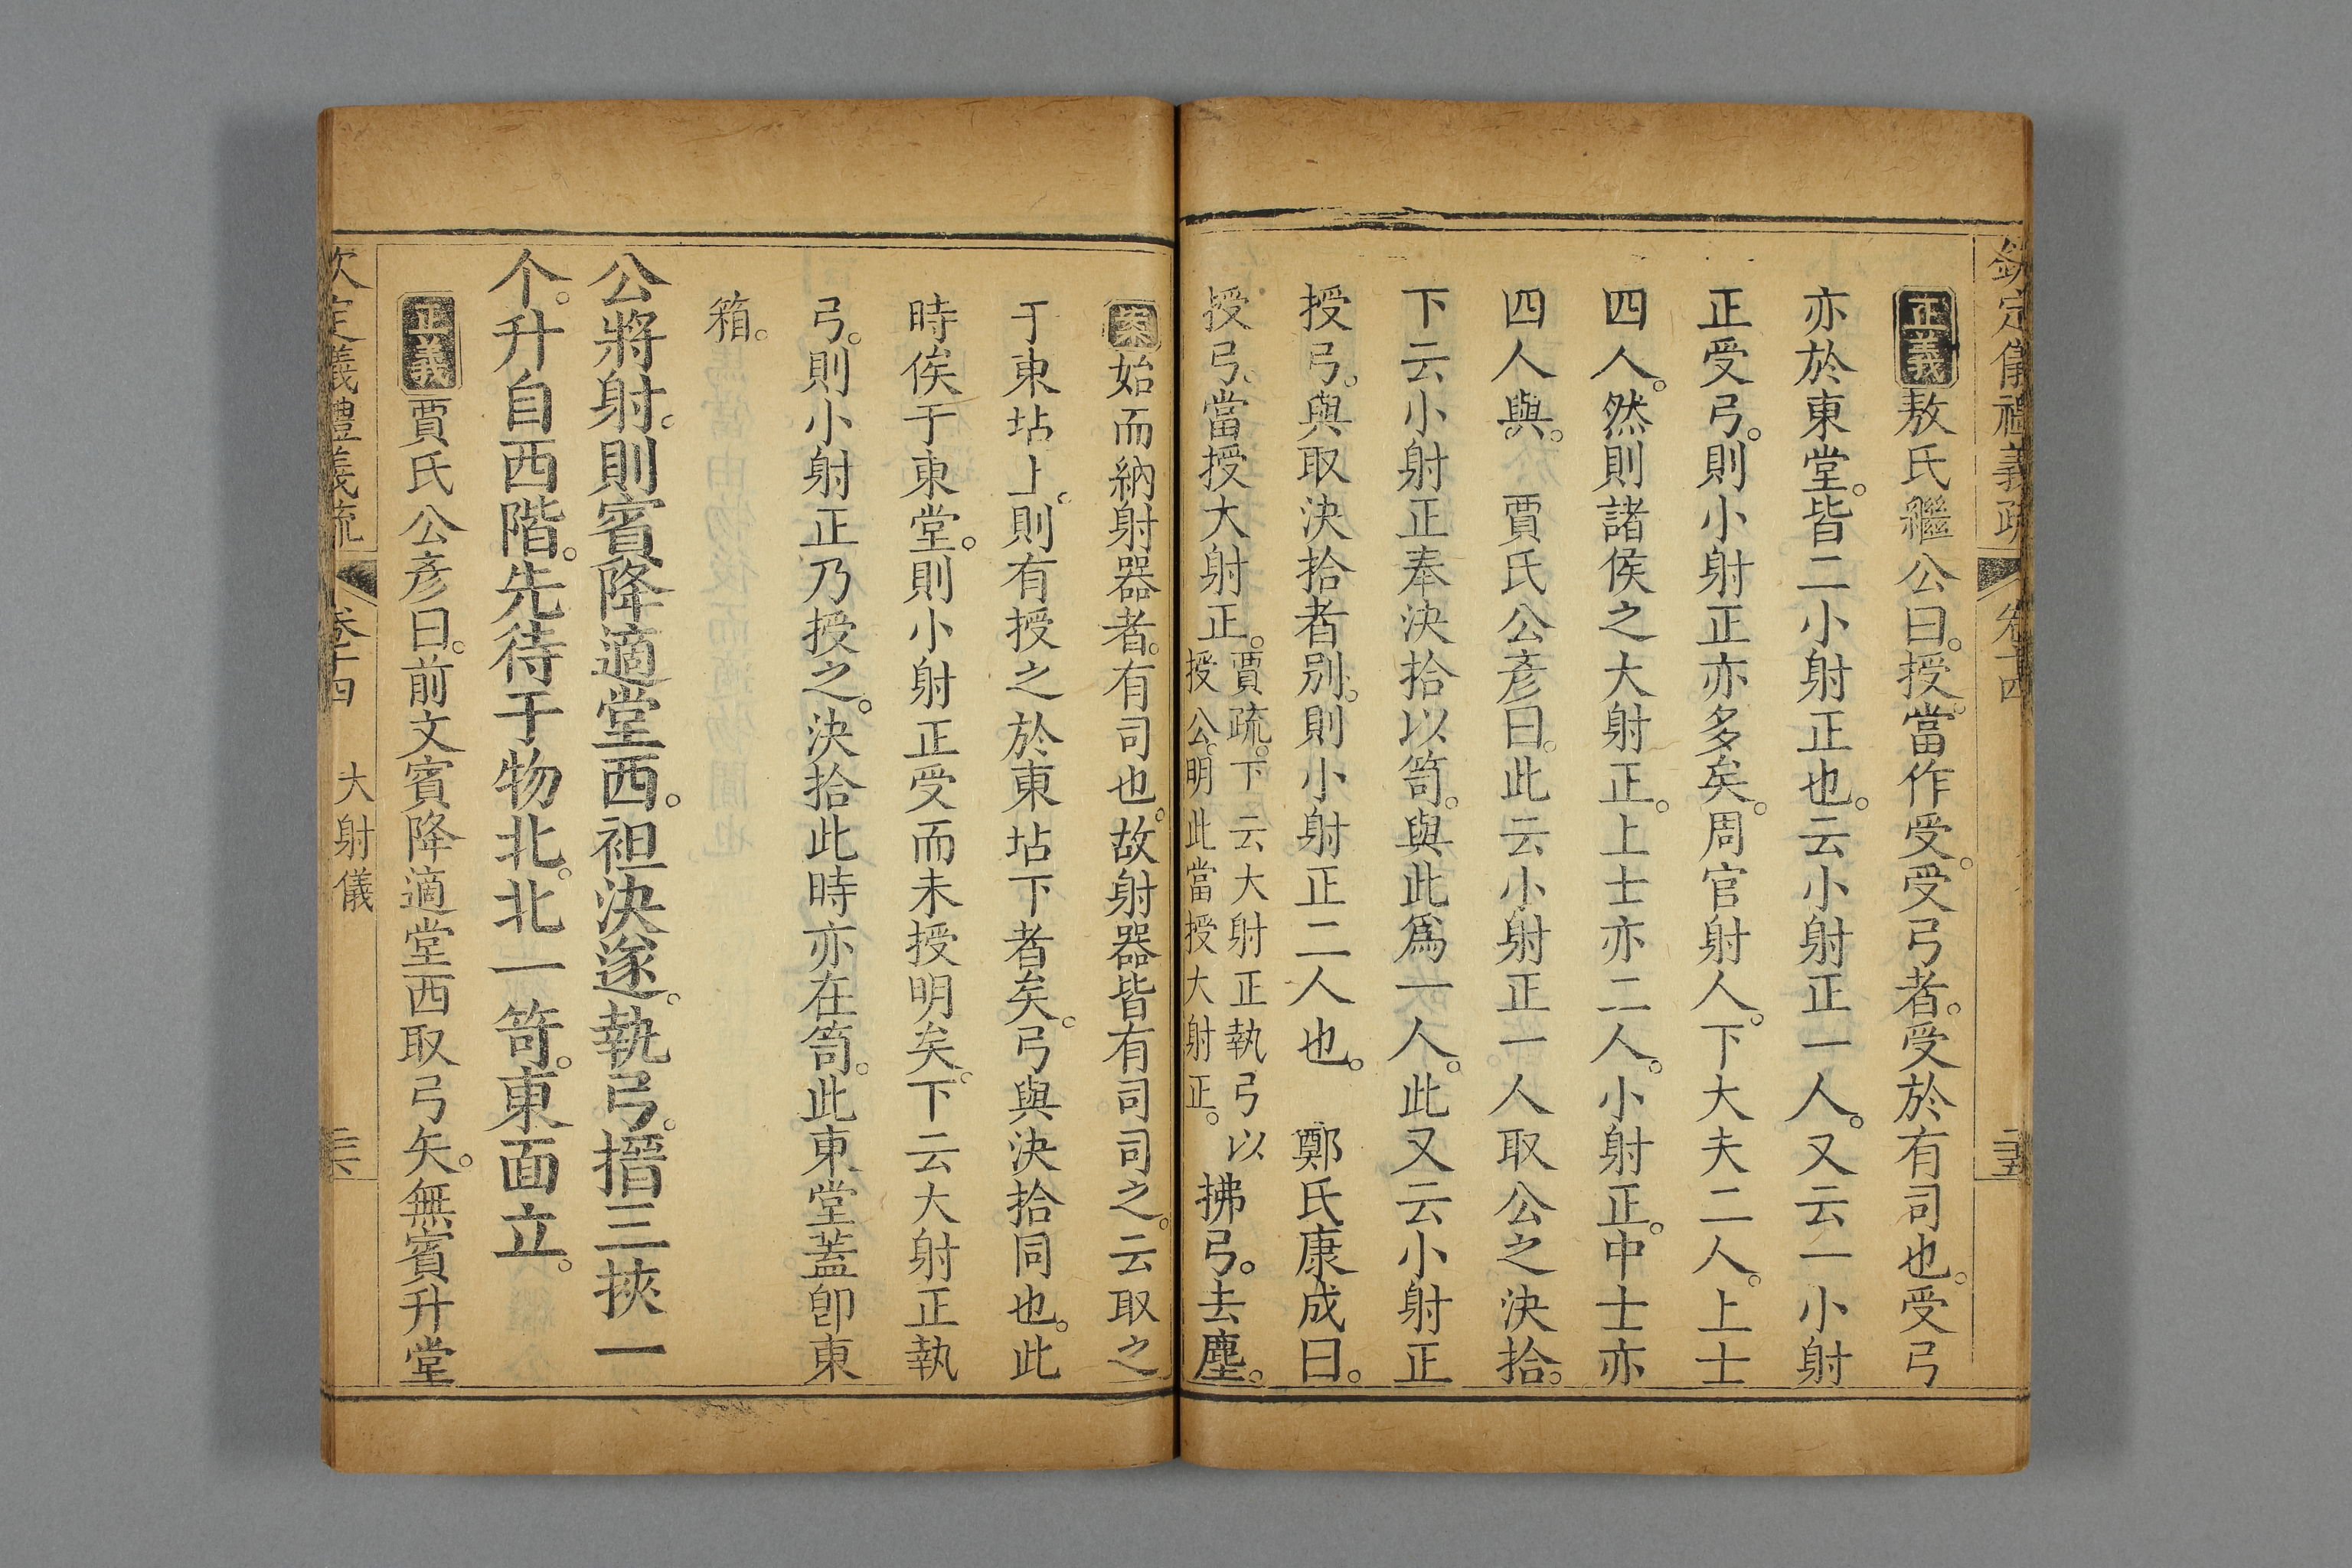 欽定儀禮義疏 卷十四
正義敖氏繼公曰。授。當作受。受弓者。受於有司也。受弓
亦於東堂。皆二小射正也。云小射正一人。又云一小射
正受弓。則小射正亦多矣。周官射人。下大夫二人。上士
四人。然則諸侯之大射正。上士亦二人。小射正。中士亦
四人與。 賈氏公彥曰。此云小射正一人取公之決拾。
下云小射正奉決拾以笥。與此爲一人。此又云小射正
授弓。與取決拾者別。則小射正二人也。 鄭氏康成曰。
授弓。當授大射正。賈疏。下云大射正執弓以授公。明此當授大射正。拂弓。去塵。
案始而納射器者。有司也。故射器皆有司司之。云取之
于東坫上。則有授之於東坫下者矣。弓與決拾同也。此
時俟于東堂。則小射正受而未授明矣。下云大射正執
弓。則小射正乃授之。決拾此時亦在笥。此東堂蓋卽東
箱。
公將射。則賓降適堂西。袒決遂。執弓。搢三挾一
个。升自西階。先待于物北。北一笴。東面立。
正義賈氏公彥曰。前文賓降適堂西取弓矢。無賓升堂
欽定儀禮義疏 卷十四 大射儀